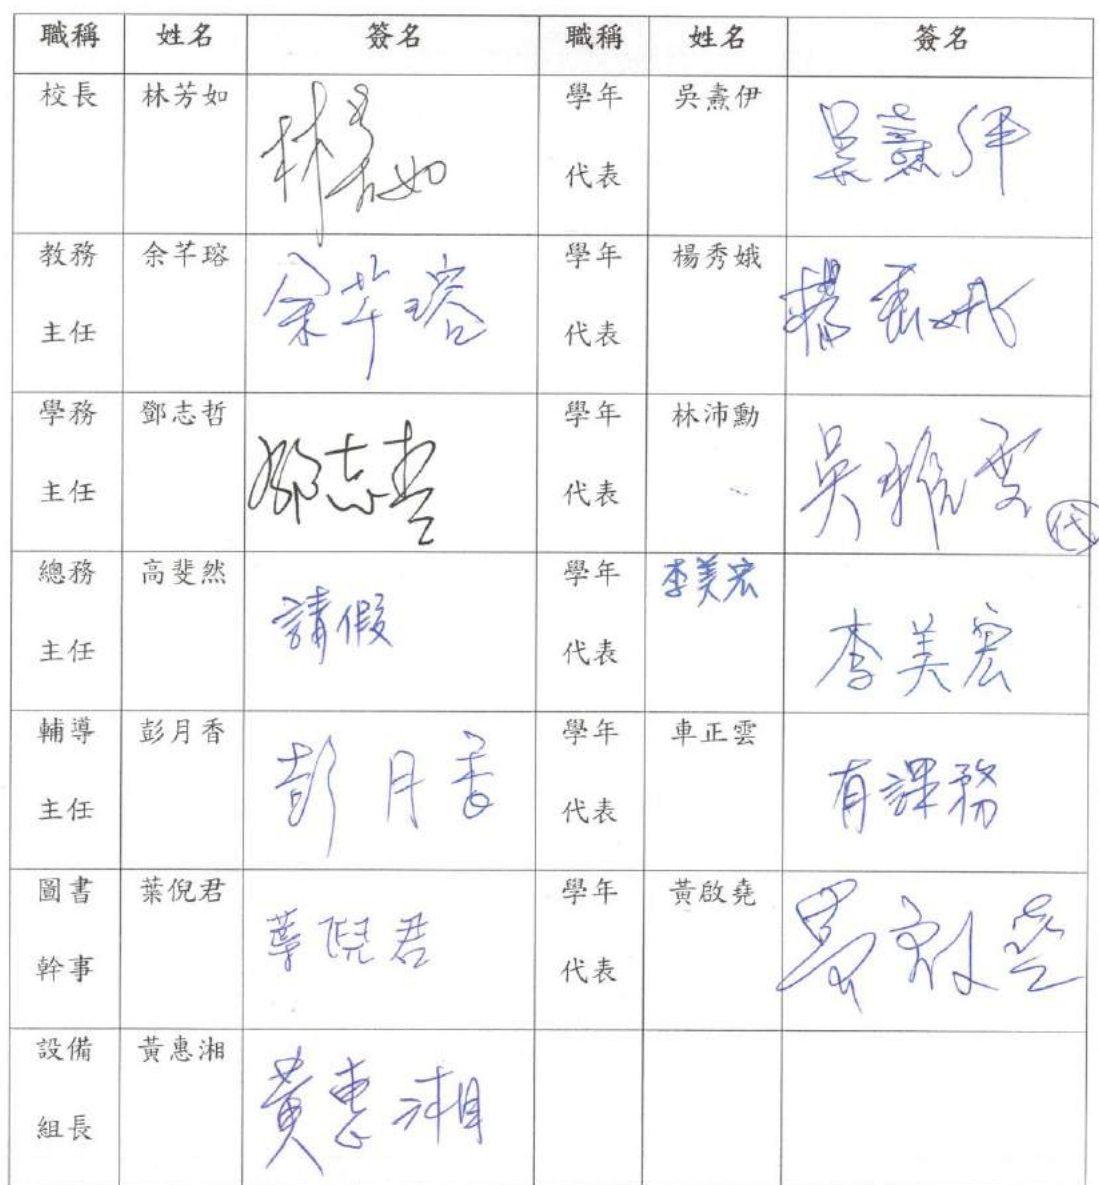 職稱 姓名 簽名 職稱 姓名 簽名
校長 林芳如 林芳如 學年代表 吳燾伊 吳燾伊
教務主任 余芊瑢 余芊瑢 學年代表 楊秀娥 楊秀娥
學務主任 鄧志哲 鄧志哲 學年代表 林沛勳 吳雅雯 代
總務主任 高斐然 請假 學年代表 李美宏 李美宏
輔導主任 彭月香 彭月香 學年代表 車正雲 有課務
圖書幹事 葉倪君 葉倪君 學年代表 黃啟堯 黃啟堯
設備組長 黃惠湘 黃惠湘